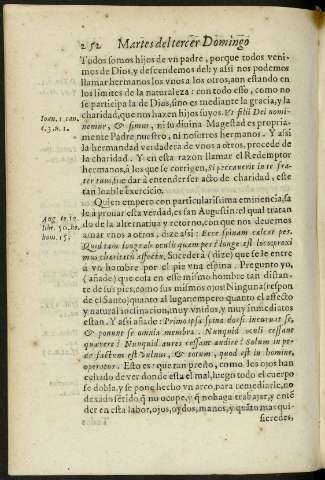 252 Martes del tercer Domingo
Todos somos hijos de vn padre, porque todos veni-
mos de Dios, y descendemos del: y assi nos podemos
llamar hermanos los vnos a los otros, aun estando en
los limites de la naturaleza: con todo esso, como no
se participa la de Dios, sino es mediante la gracia, y la
charidad, que nos hazen hijos suyos. Et filij Dei nomi-
nemur, & simus, ni su diuina Magestad es propria-
mente Padre nuestro, ni nosotros hermanos. Y assi
la hermandad verdadera de vnos a otros, procede de
la charidad. Y en esta razon llamar el Redemptor
hermanos, à los que se corrigen, Si peccauerit in te fra-
ter tuus, fue dar à entender ser acto de charidad, este
tan loable exercicio.
Ioan. 1. can.
c. 3. n. 1.
Quien empero con particularissima eminencia, sa
le à prouar esta verdad, es san Augustin: el qual tratan
do de la alternatiua y retorno, con que nos deuemos
amar vnos a otros, dize assi: Ecce spinam calcat pes.
Quid tam longe ab oculis quam pes? longe est loco, proxi
mus charitatis affectu. Sucederà (dize) que se le entre
à vn hombre por el pie vna espina. Pregunto yo,
(añade) que cosa en esse mismo hombre tan distan-
te de sus pies, como sus mismos ojos? Ninguna (respon
de el Santo) quanto al lugar: empero quanto el affecto
y natural inclinacion, muy vnidos, y muy inmediatos
estan. Y assi añade: Primo ipsa spina dorsi incuruat se,
& ponunt se omnia membra. Nunquid oculi cessant
quærere? Nunquid aures cessant audire? Solum in pe-
de factum est vulnus, & totum, quod est in homine,
operatur. Esto es: que tan presto, como los ojos han
echado de ver donde esta el mal, luego todo el cuerpo
se dobla, y se pone hecho vn arco, para remediarle, no
dexado sētido q̄ no ocupe, y q̄ no haga trabajar, y entē
der en esta labor, ojos, oydos, manos, y quāto mas qui-
Aug. to. 10.
libr. 50. ho.
hom. 15.
sieredes,